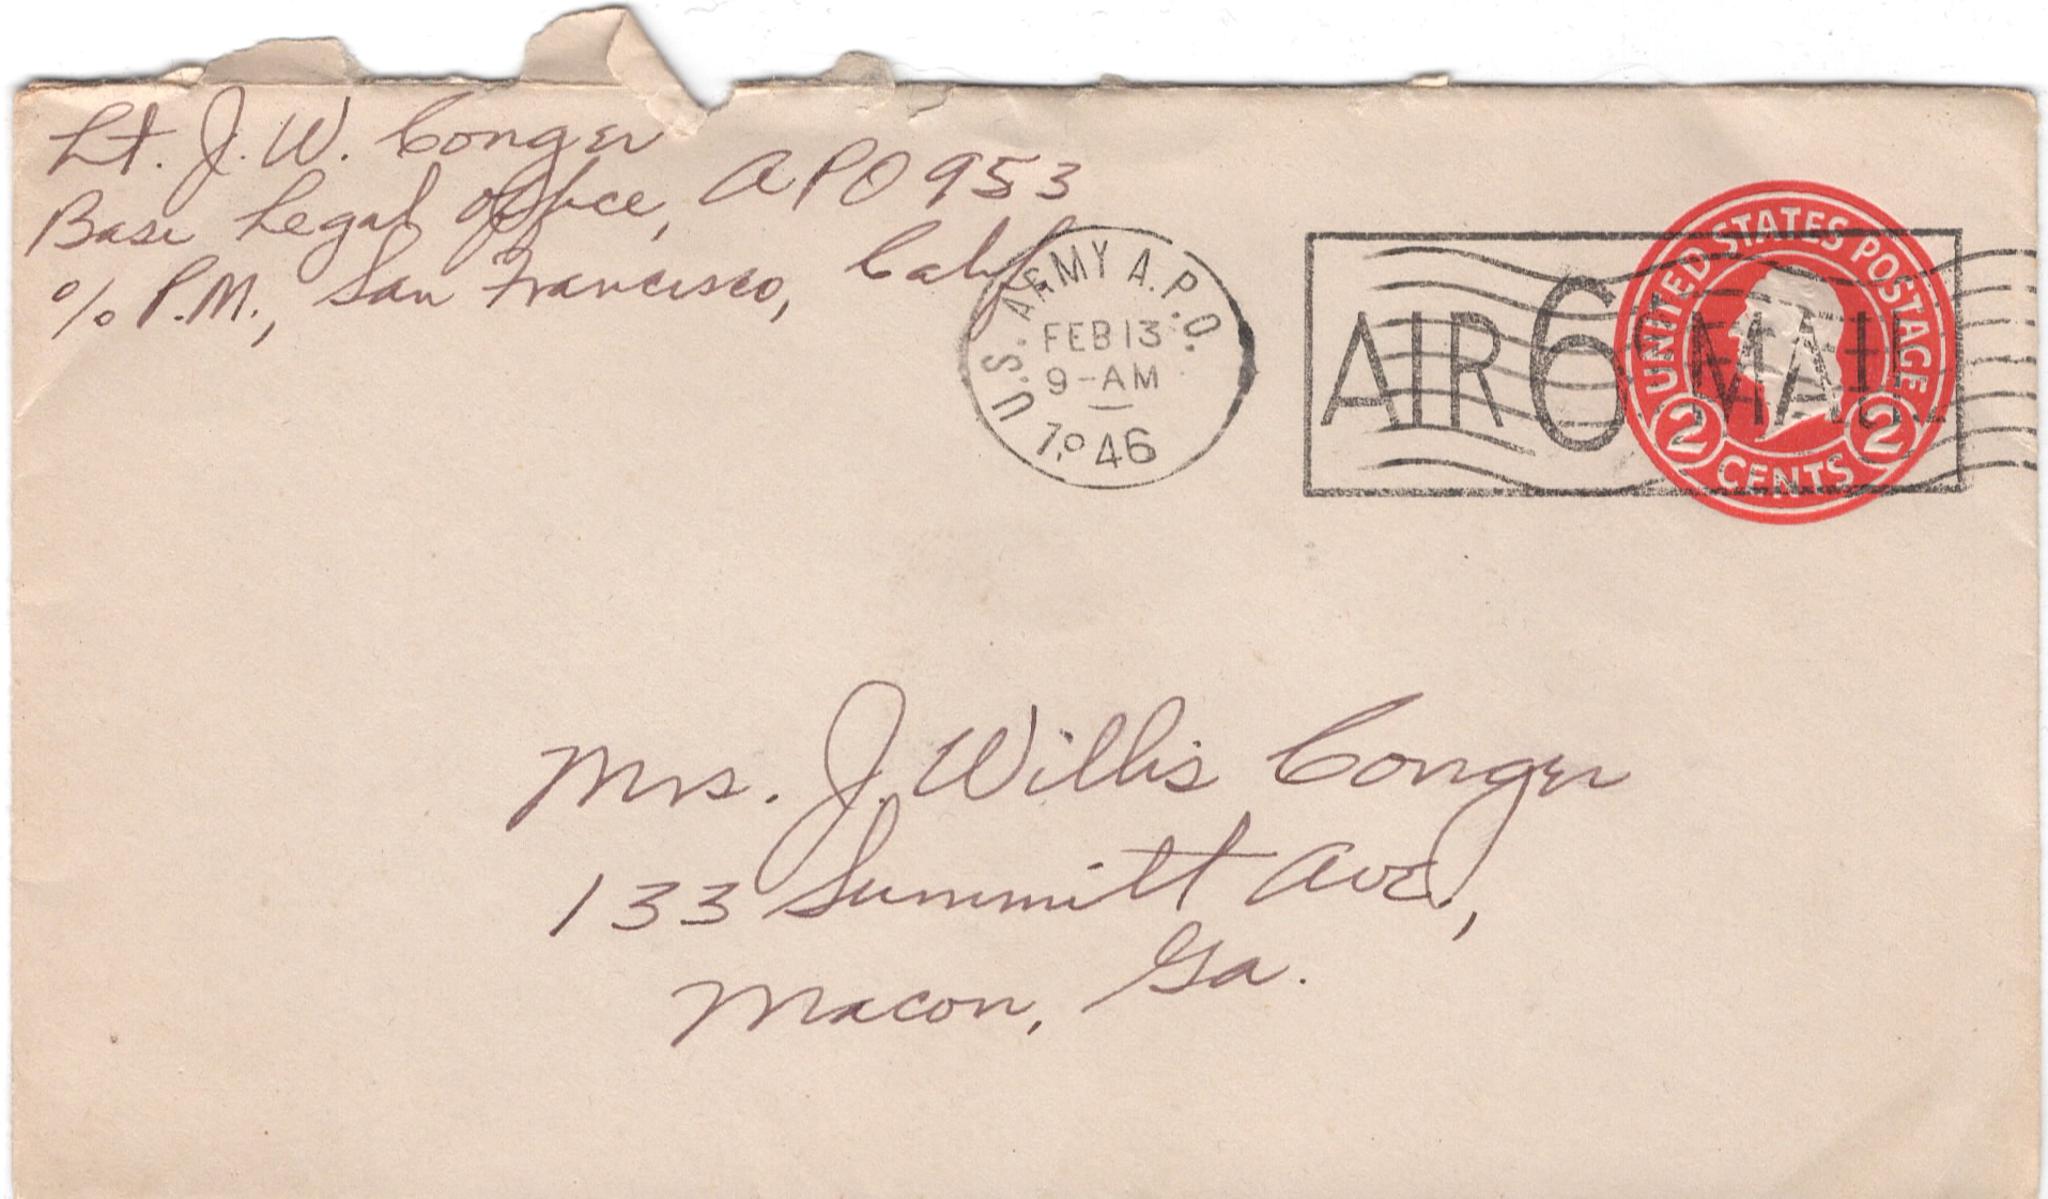 Lt. J. W. Conger
Base Legal Office, APO 953
% P.M., San Francisco, Calif
U.S. ARMY A.P.O.
FEB 13
9-AM
1946
AIR 6¢ MAIL
UNITED STATES POSTAGE
2 CENTS 2
Mrs. J. Willis Conger
133 Summitt Ave.,
Macon, Ga.